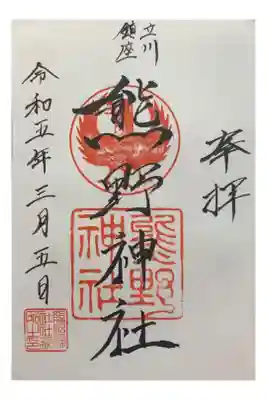 奉拝
立川
鎮座
熊野神社
熊野
神社
令和五年三月五日